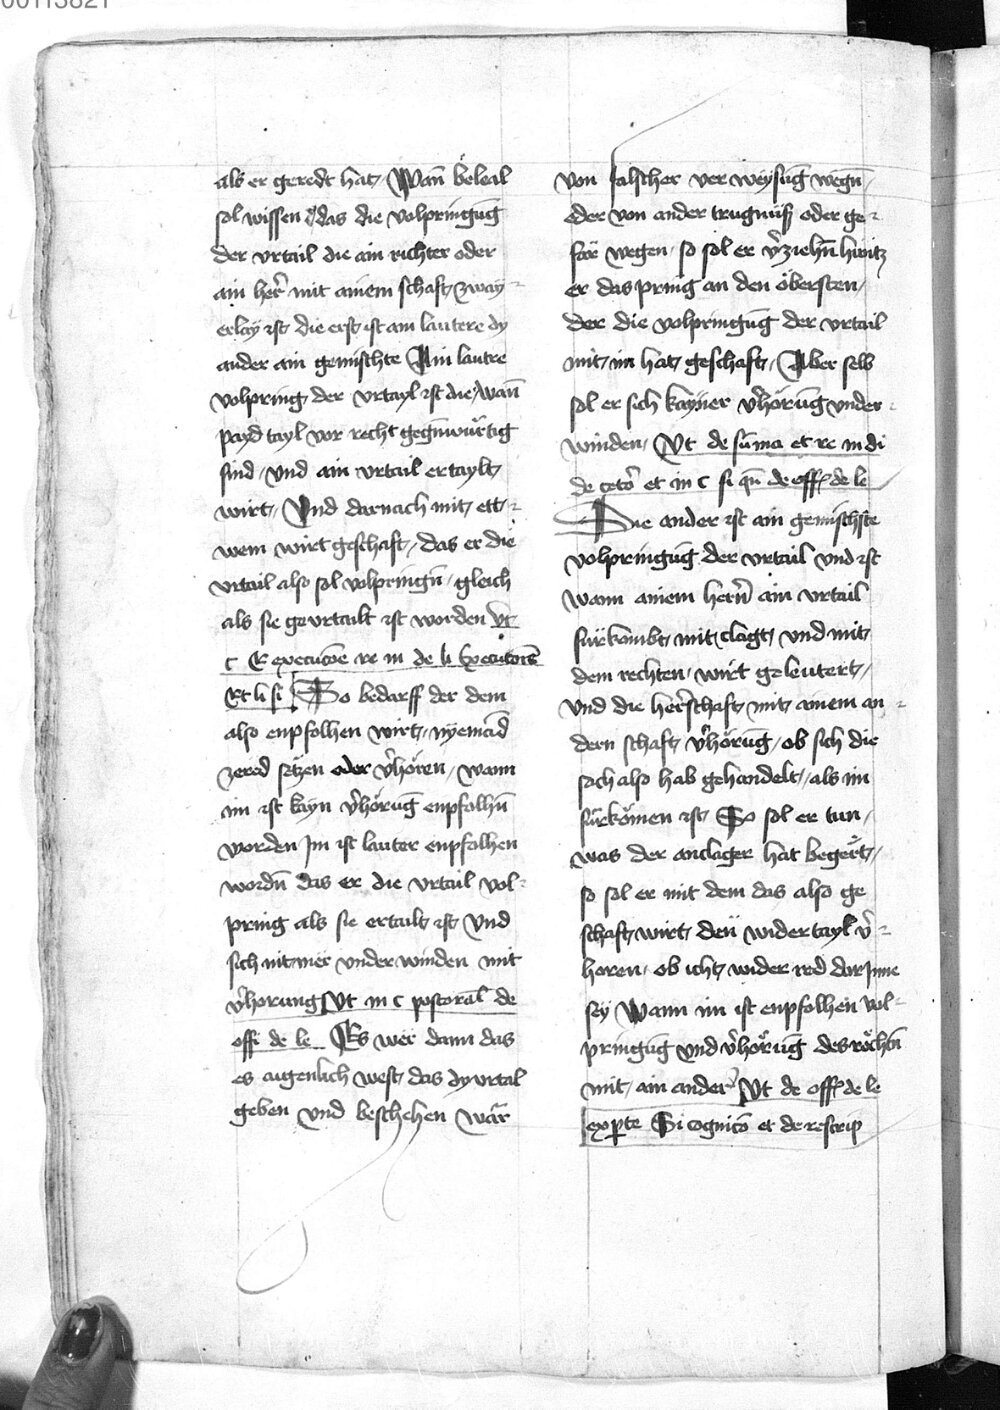 00113821
als er geredt hat, Wan̄ beleal
sol wissen das die volpringūg
der vrtail die ain richter oder
ain her̄ mit ainem schaft zway
erlay ist die erst ist ain lautere dy
ander ain gemischte Ain lautre
volpring der vrtayl ist die, wan̄
payd tayl vor recht gegnwürtig
sind, vnd ain vrtail ertaylt,
wirt, Vnd darnach mit, ett
wem wirt geschaft, das er die
vrtail also sol volpringn̄, gleich
als sie geurtailt ist worden vt
c executōe re in de li Executorē
Et li si So bedarff der dem
also enpfolhen wirt, nyemād
zered setzen oder v̄hören, wann
im ist kayn v̄hörūg enpfolhn̄
worden Im ist lauter enpfolhen
wordn̄ das er die vrtail vol
pring als sie ertailt ist Vnd
sich nit mer vnderwinden mit
v̄horung Vt in c pastoral de
offi de le Es wer dann das
es aigenlich west das dy vrtal
geben vnd beschehen wär
von falscher verweysūg wegn̄,
oder von ander trugnüß oder ge
fär wegen, so sol er v̄ziehn̄ huntz
er das pring an den obersten,
der die volpringūg der vrtail
mit, im hat, geschaft, Aber selb
sol er sich kayner v̄hörūg vnder
winden, Vt de sūma et re in di
de cetō et in c si qn̄ de off de le
Die ander ist ain gemischte
volpringūg der vrtail vnd ist
wann ainem hern̄ ain vrtail
fürkombt, mit, clagt, vnd mit,
dem rechten, wirt geleutert,
vnd die herschaft, mit, ainem an
dern schaft, v̄hörūg, ob sich die
sach also hab gehandelt, als im
fürkomen ist, So sol er tun,
was der anclager hat begert,
so sol er mit dem das also ge
schaft, wirt, den widertayl v̄
horen, ob icht, wider red dar Inne
sey Wann im ist enpfolhen vol
pringūg vnd v̄hörūg des rechtn̄
mit, ain ander Vt de off de le
exp̄te Si cognicō et de rescrip